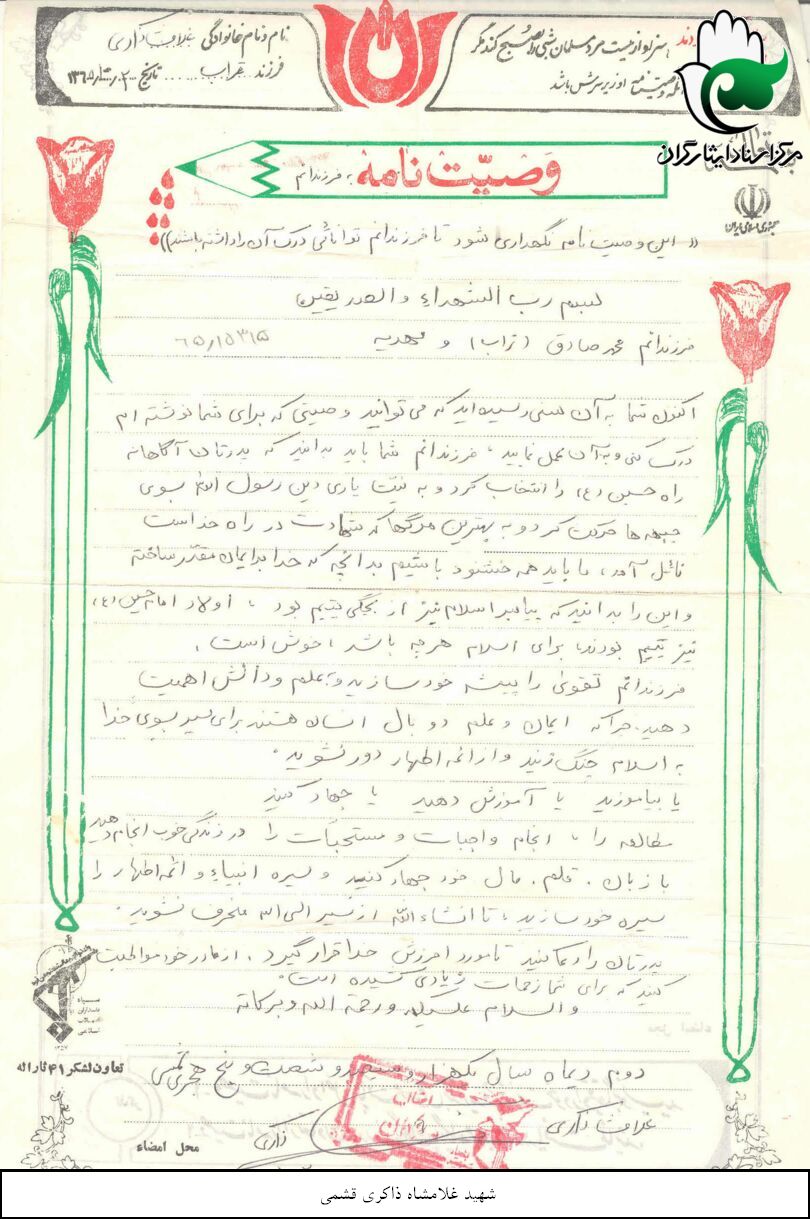 سزاوار نیست مرد مسلمان شبی را صبح کند مگر
وصیتنامه او زیر سرش باشد
نام و نام خانوادگی غلامشاه ذاکری
فرزند تراب تاریخ ۱۳۶۵
مرکز اسناد ایثارگران
جمهوری اسلامی ایران
وصیّت نامه به فرزندانم
((این وصیت نامه نگهداری شود تا فرزندانم توانائی درک آن را داشته باشند))
بسم رب الشهداء والصدیقین
فرزندانم محمد صادق (تراب) و مهدیه
اکنون شما به آن سنی رسیده اید که می توانید وصیتی که برای شما نوشته ام
درک کنی و به آن عمل نمایید، فرزندانم شما باید بدانید که پدرتان آگاهانه
راه حسین (ع) را انتخاب کرد و به نیت یاری دین رسول الله بسوی
جبهه ها حرکت کرد و به بهترین مرگها که شهادت در راه خداست
نائل آمد، ما باید همه خشنود باشیم بدانچه که خدا برایمان مقدّر ساخته
و این را بدانید که پیامبر اسلام نیز از بچگی یتیم بود، اولاد امام حسین (ع)
نیز یتیم بودند، برای اسلام هرچه باشد، خوش است.
فرزندانم تقوی را پیشه خود سازید و به علم و دانش اهمیت
دهید. چرا که ایمان و علم دو بال انسان هستند برای سیر بسوی خدا
به اسلام چنگ زنید و از ائمه اطهار دور نشوید.
یا بیاموزید یا آموزش دهید یا جهاد کنید
مطالعه را، انجام واجبات و مستحبات را در زندگی خوب انجام دهید
با زبان. قلم. مال خود جهاد کنید و سیره انبیاء و ائمه اطهار را
سیره خود سازید، تا انشاء الله از سیر الی الله منحرف نشوید.
پدرتان را دعا کنید تا مورد آمرزش خدا قرار گیرد. از مادر خود مواظبت
کنید که برای شما زحمات زیادی کشیده است.
والسلام علیکم و رحمة الله و برکاته
سپاه پاسداران انقلاب اسلامی
تعاون لشکر ۴۱ ثارالله
دوم دیماه سال یکهزار و سیصد و شصت و پنج هجری شمسی
غلامشاه ذاکری
ذاکری
محل امضاء
شهید غلامشاه ذاکری قشمی